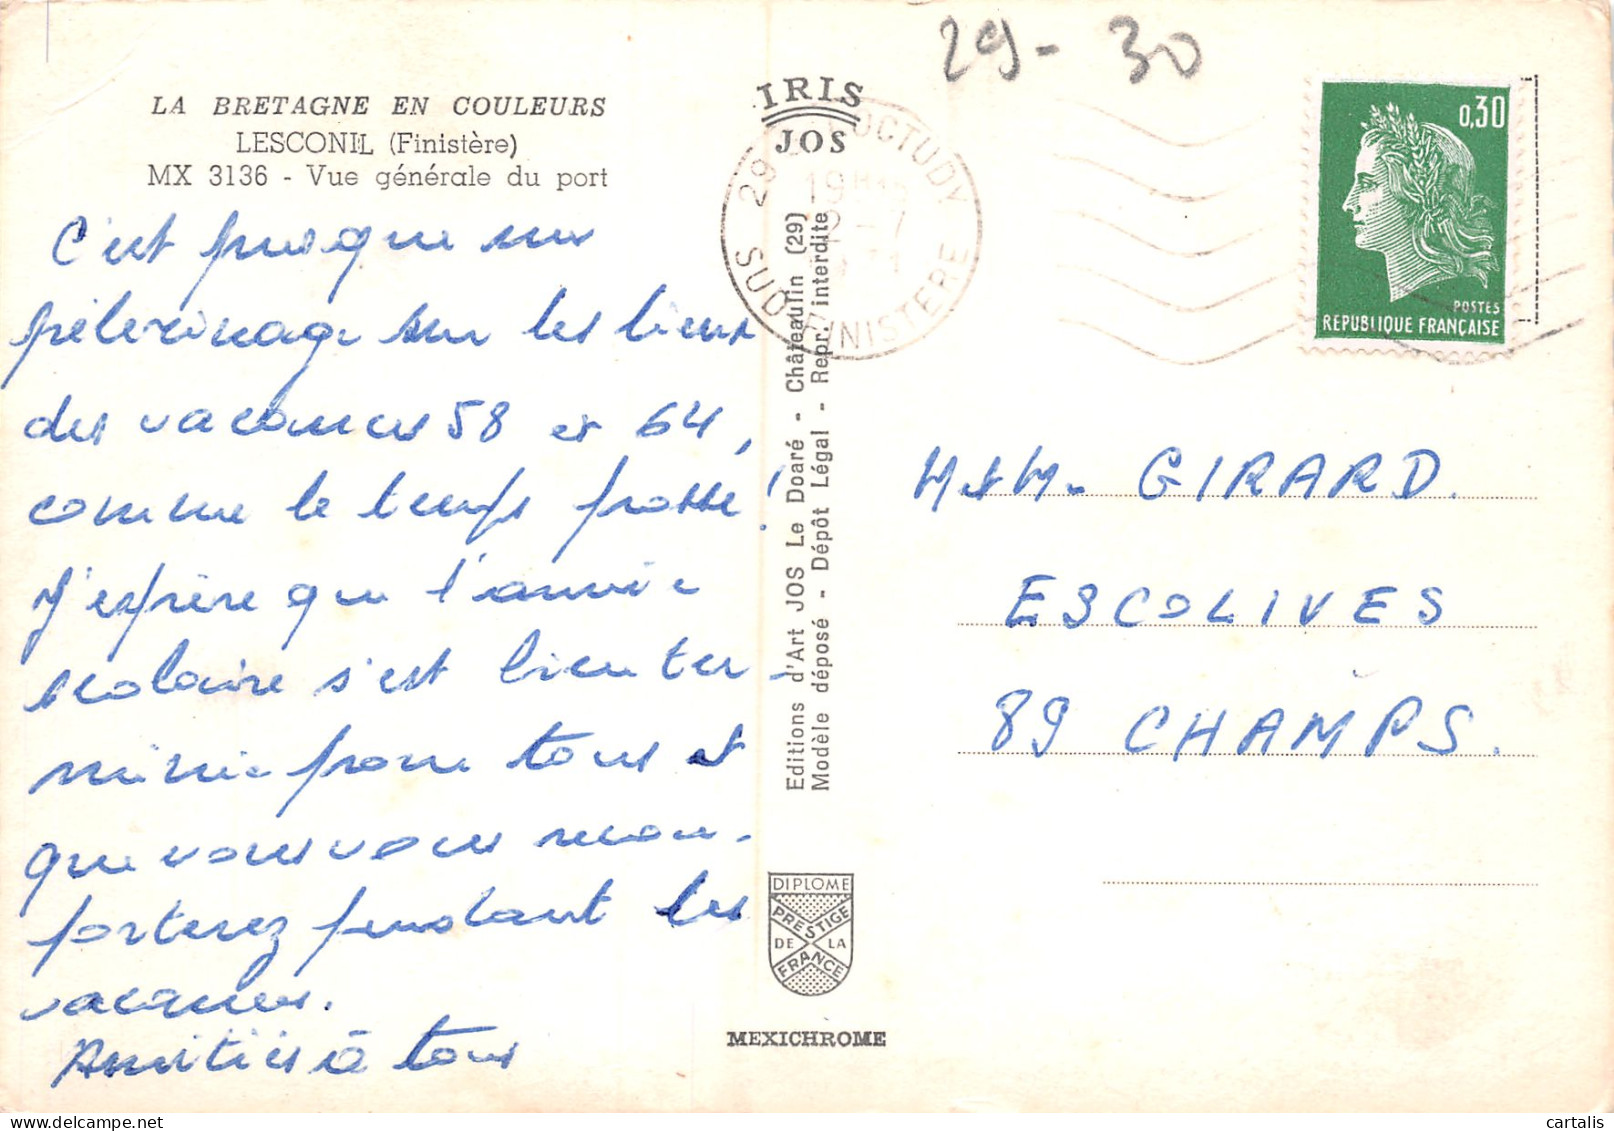 29-30
LA BRETAGNE EN COULEURS
LESCONIL (Finistère)
MX 3136 - Vue générale du port
C'est presque un
pèlerinage sur les lieux
des vacances 58 et 64,
comme le temps passe!
J'espère que l'année
scolaire s'est bien ter-
minée pour tous et
que vous vous
porterez pendant les
vacances.
Amitiés à tous
IRIS
JOS
29 LOCTUDY
19H
2-7
SUD FINISTERE
Editions d'Art JOS Le Doaré - Châteaulin (29)
Modèle déposé - Dépôt Légal - Repr. interdite
DIPLOME
PRESTIGE
DE LA
FRANCE
MEXICHROME
0,30
POSTES
REPUBLIQUE FRANÇAISE
M & M. GIRARD.
ESCOLIVES
89 CHAMPS.
cartalis